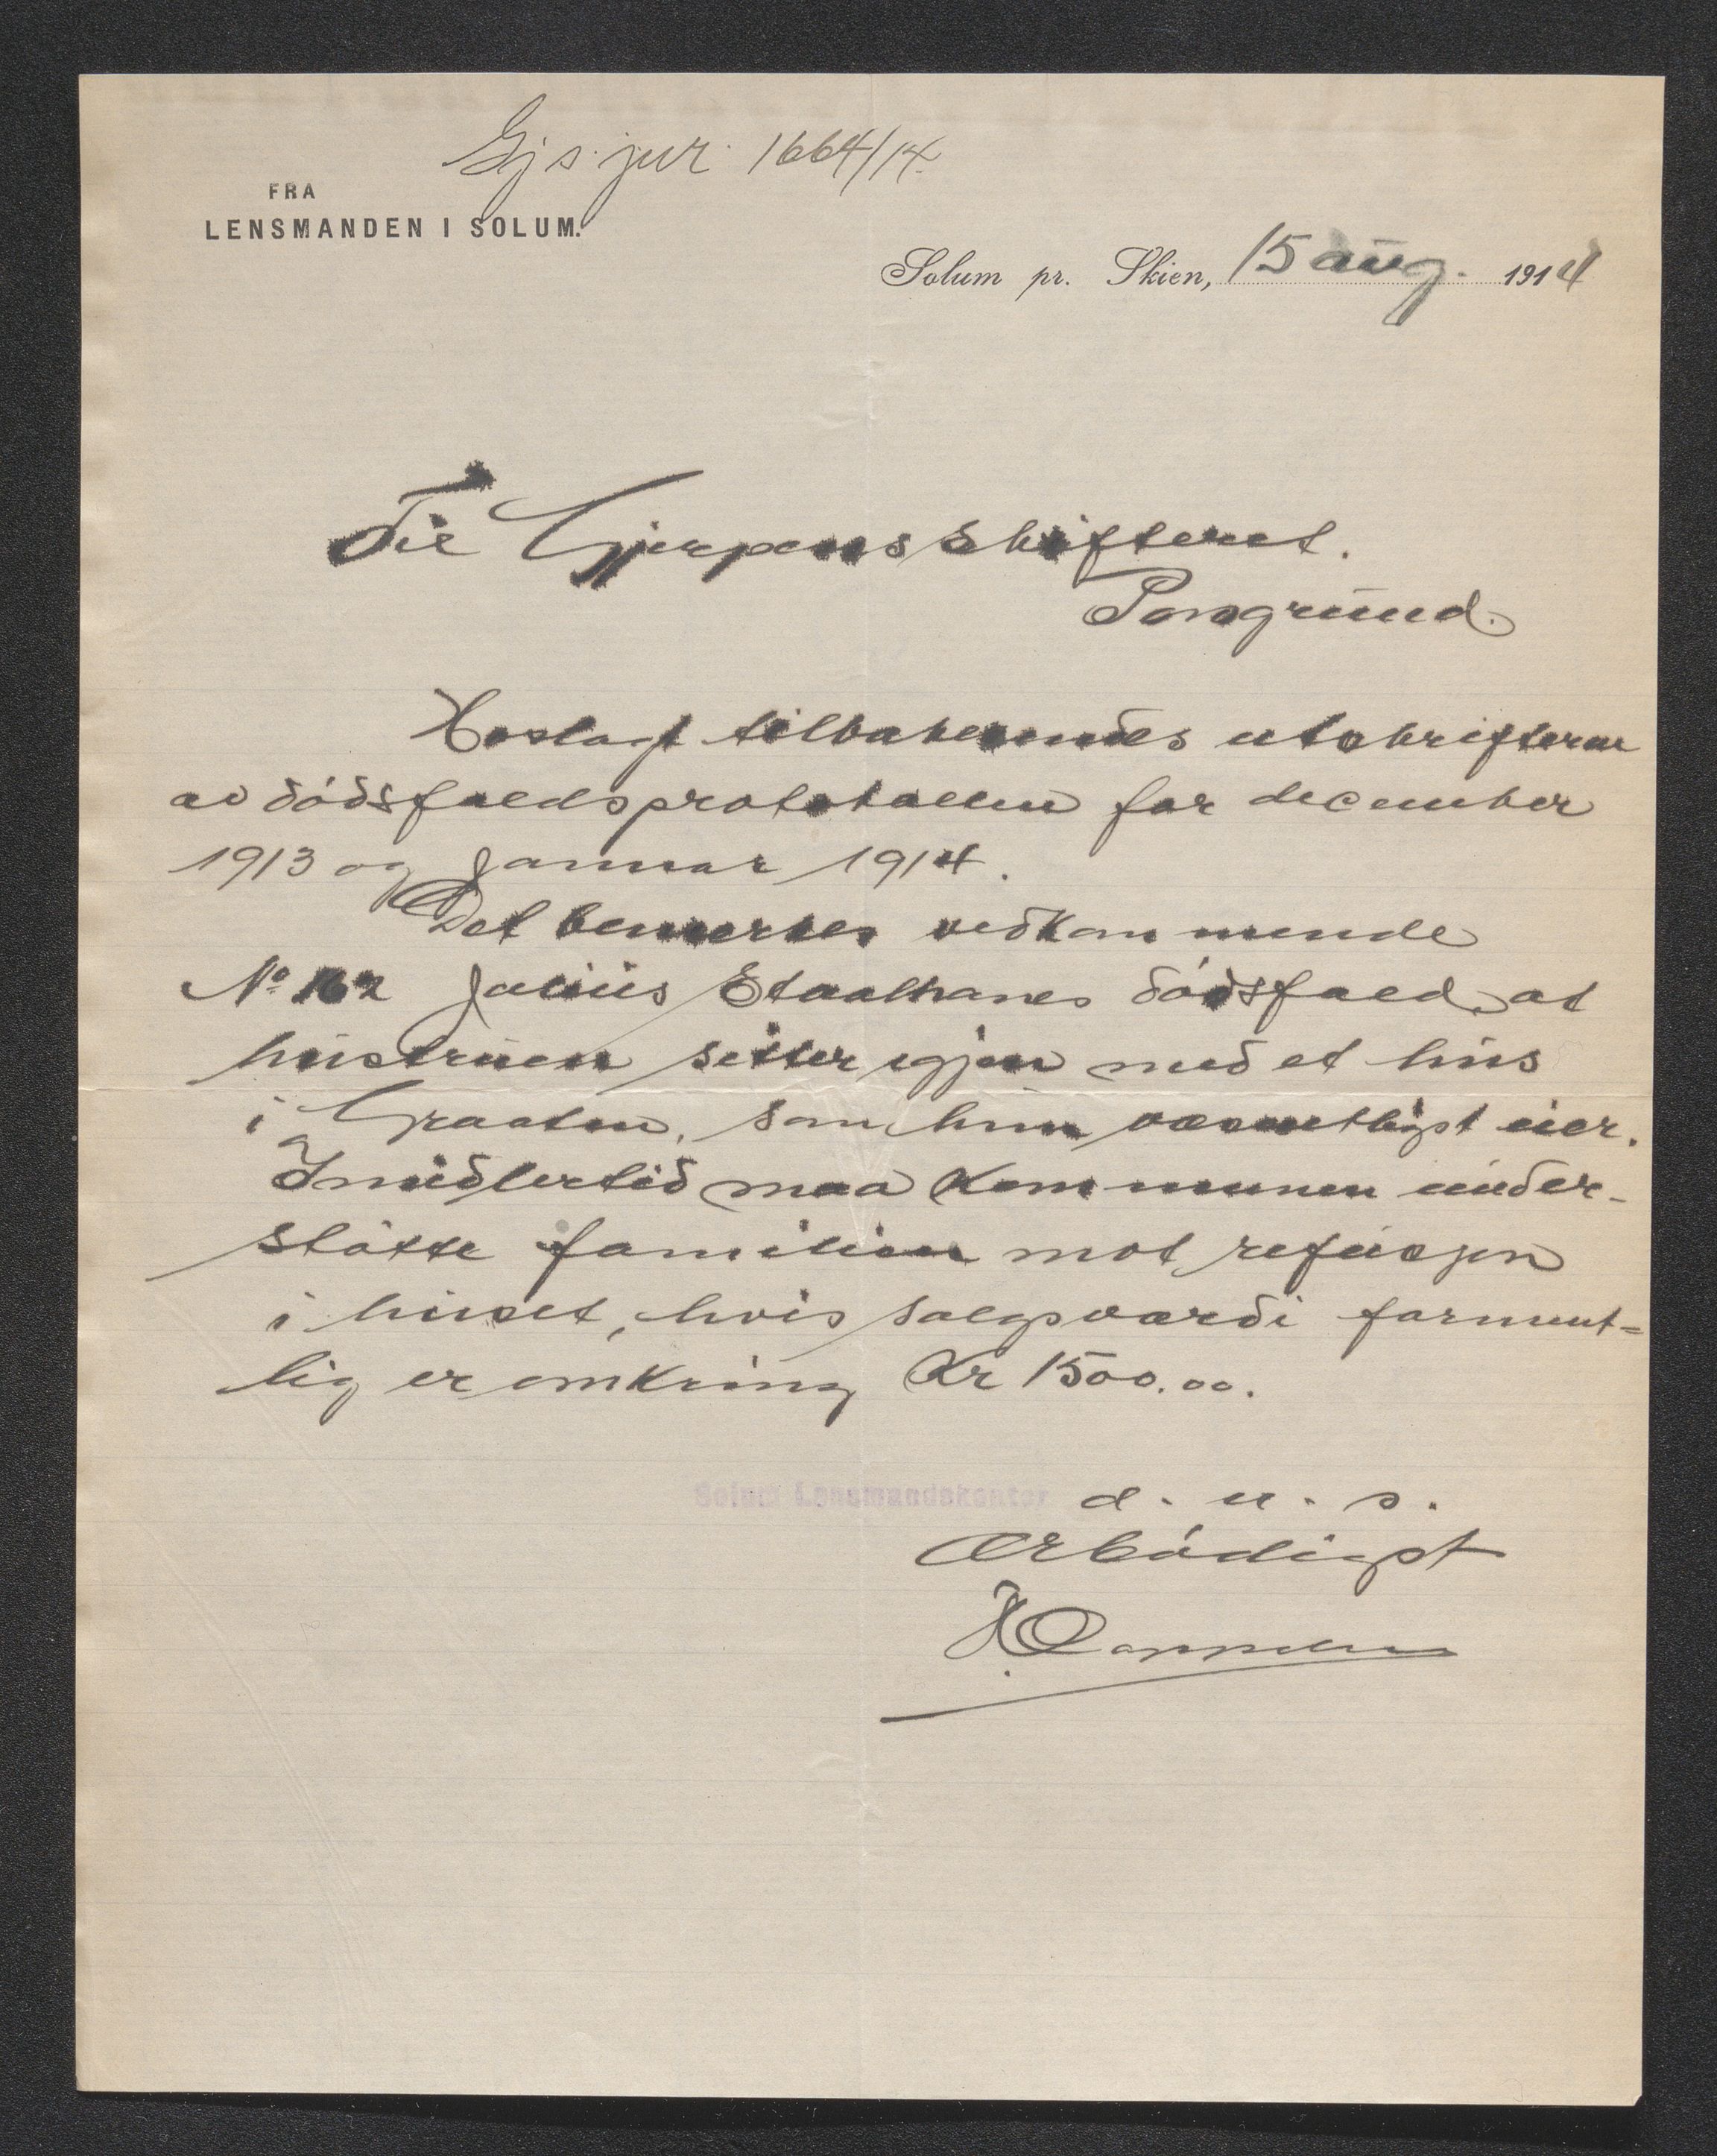 Gj s. jur. 1664/14.
FRA
LENSMANDEN I SOLUM.
Solum pr. Skien, 15 aug. 1914
Til Gjerpens skifteret.
Porsgrund.
Hoslagt tilbakesendes utskrifterne
av dødsfaldsprotokollen for december
1913 og Januar 1914.
Det bemerkes vedkommende
No 162 Julius Staalhanes dødsfald, at
hustruen sitter igjen med et hus
i Graaten, som hun væsentligst eier.
Imidlertid maa Kommunen under-
støtte familien mot refusjon
i huset, hvis salgsværdi forment-
lig er omkring Kr 1500.00.
Solum Lensmandskontor d. u. s.
Ærbødigst